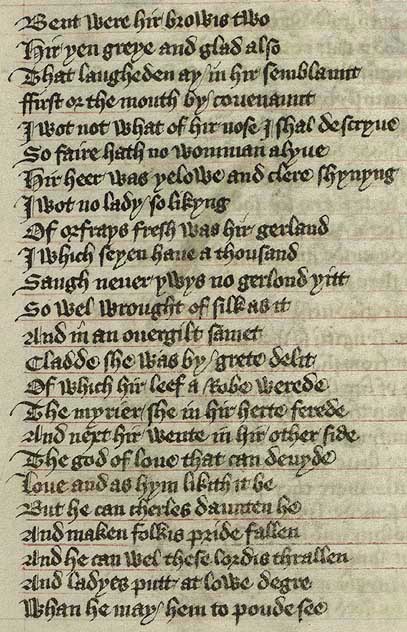 Bent were hir browis two
Hir yen greye and glad also
That laugheden ay in hir semblaunt
ffirst or the mouth by couenaunt
I wot not what of hir nose I shal descryue
So faire hath no womman alyue
Hir heer was yelowe and clere shynyng
I wot no lady so likyng
Of orfrays fresh was hir gerland
I which seyen haue a thousand
Saugh neuer ywys no gerlond yitt
So wel wrought of silk as it
And in an ouergilt samet
Cladde she was by grete delit
Of which hir leef a Robe werede
The myrier she in hir herte ferede
And next hir wente in hir other side
The god of loue that can deuyde
Loue and as hym likith it be
But he can cherles daunten he
And maken folkis pride fallen
And he can wel these lordis thrallen
And ladyes putt at lowe degre
Whan he may hem to poude see